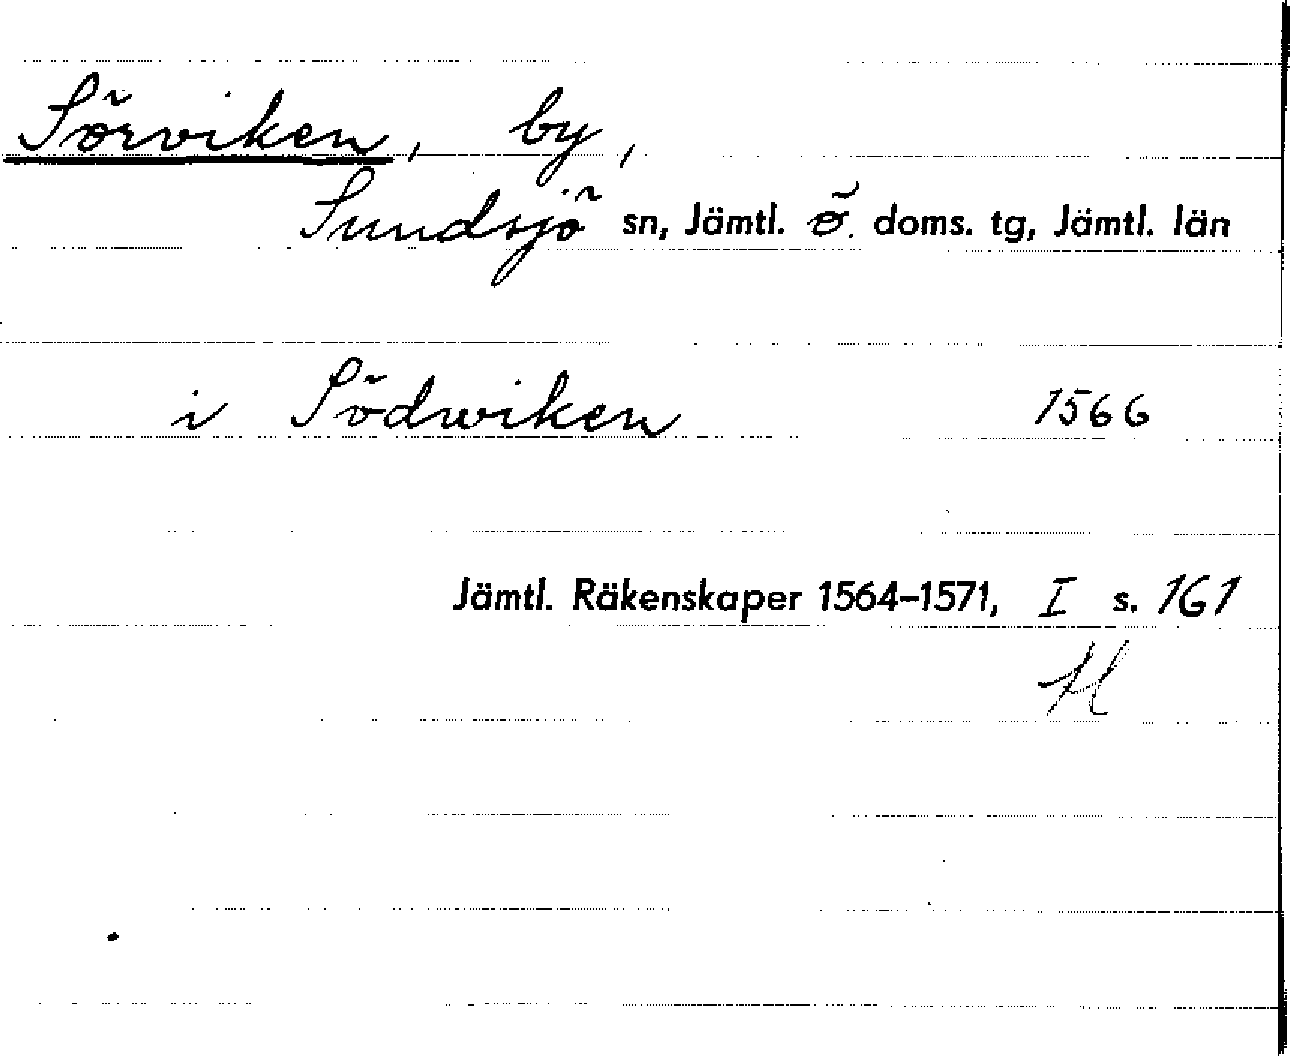 Sörviken, by,
Sundsjö sn, Jämtl. ö. doms. tg, Jämtl. län
i Södwiken 1566
Jämtl. Räkenskaper 1564–1571, I s. 161